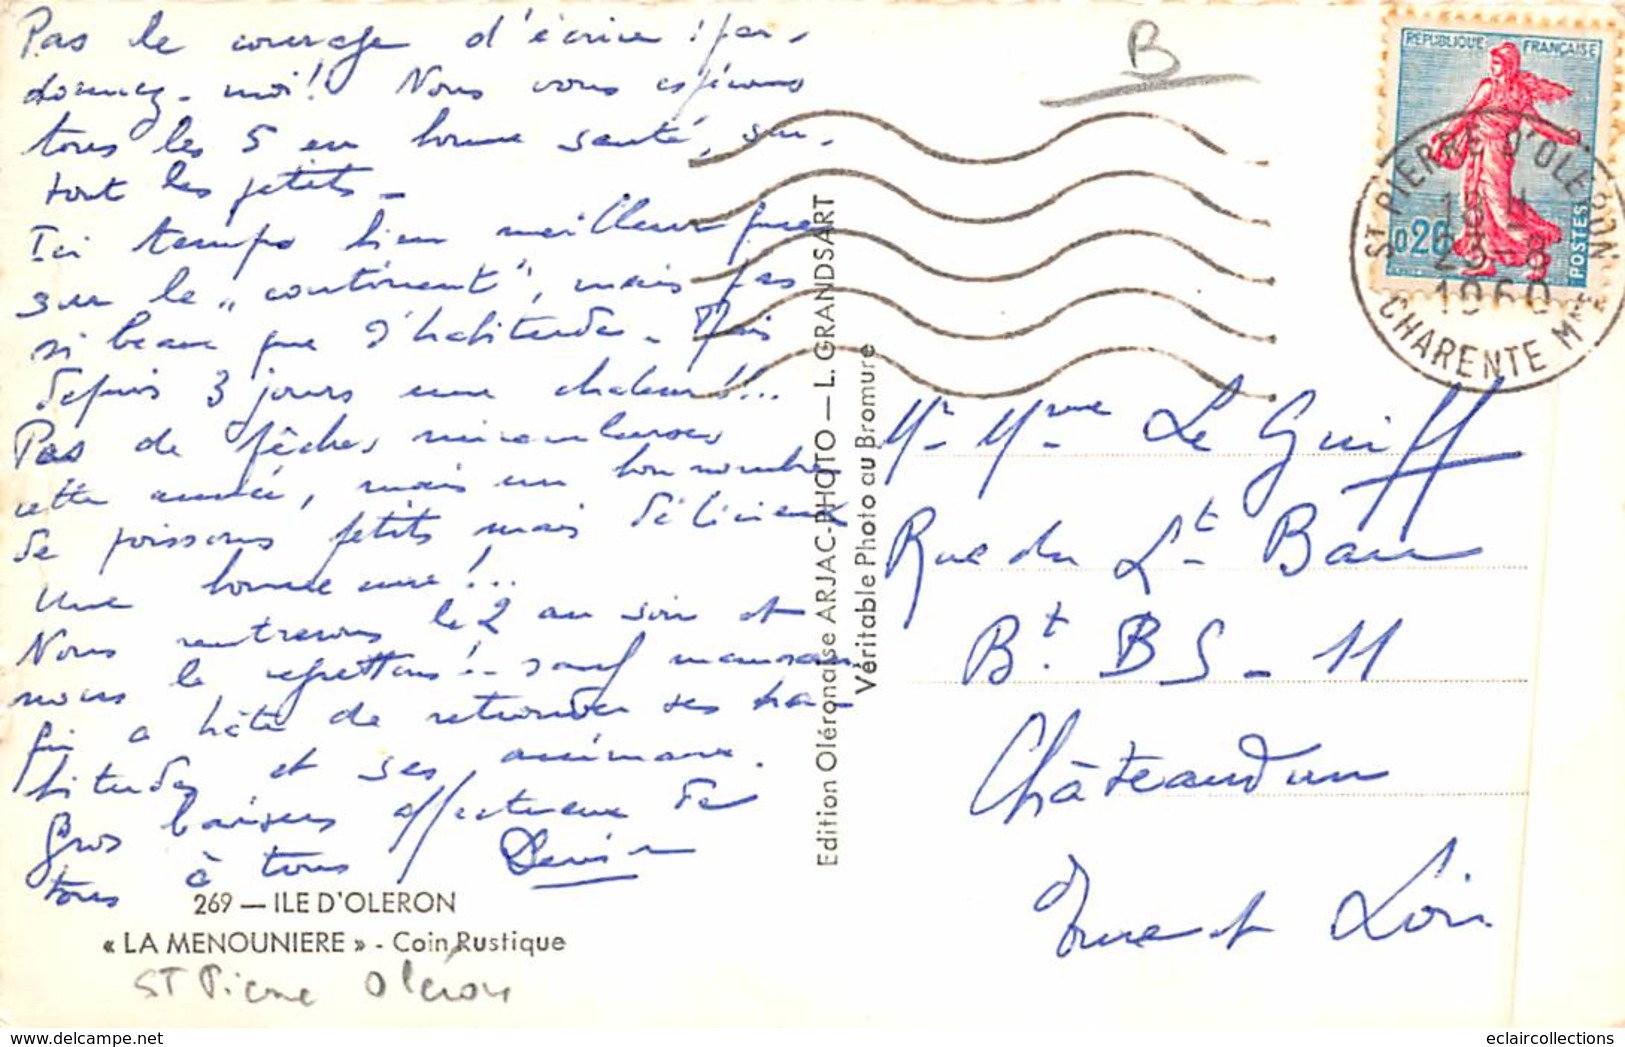 Pas le courage d'écrire : par-
donnez-moi! Nous vous espérons
tous les 5 en bonne santé, sur-
tout les petits -
Ici temps bien meilleur que
sur le „continent", mais pas
si beau que d'habitude. Mais
depuis 3 jours une chaleur!!...
Pas de pêches miraculeuses
cette année, mais un bon nombre
de poissons petits mais délicieux
Une bonne cure!...
Nous rentrerons le 2 au soir et
nous le regrettons! - sauf maman
qui a hâte de retrouver ses ha-
bitudes et ses animaux.
Gros baisers affectueux de
tous à tous
269 — ILE D'OLERON
« LA MENOUNIERE » - Coin Rustique
St Pierre Oléron
Edition Oléronaise ARJAC-PHOTO — L. GRANDSART
Véritable Photo au Bromure
B
REPUBLIQUE FRANÇAISE
0,20
POSTES
ST PIERRE D'OLERON
18 H
23-8
1960
CHARENTE Mme
Mr Mme Le Guiff
Rue du Lt Bau
Bt. BS - 11
Châteaudun
Eure et Loir
eclaircollections